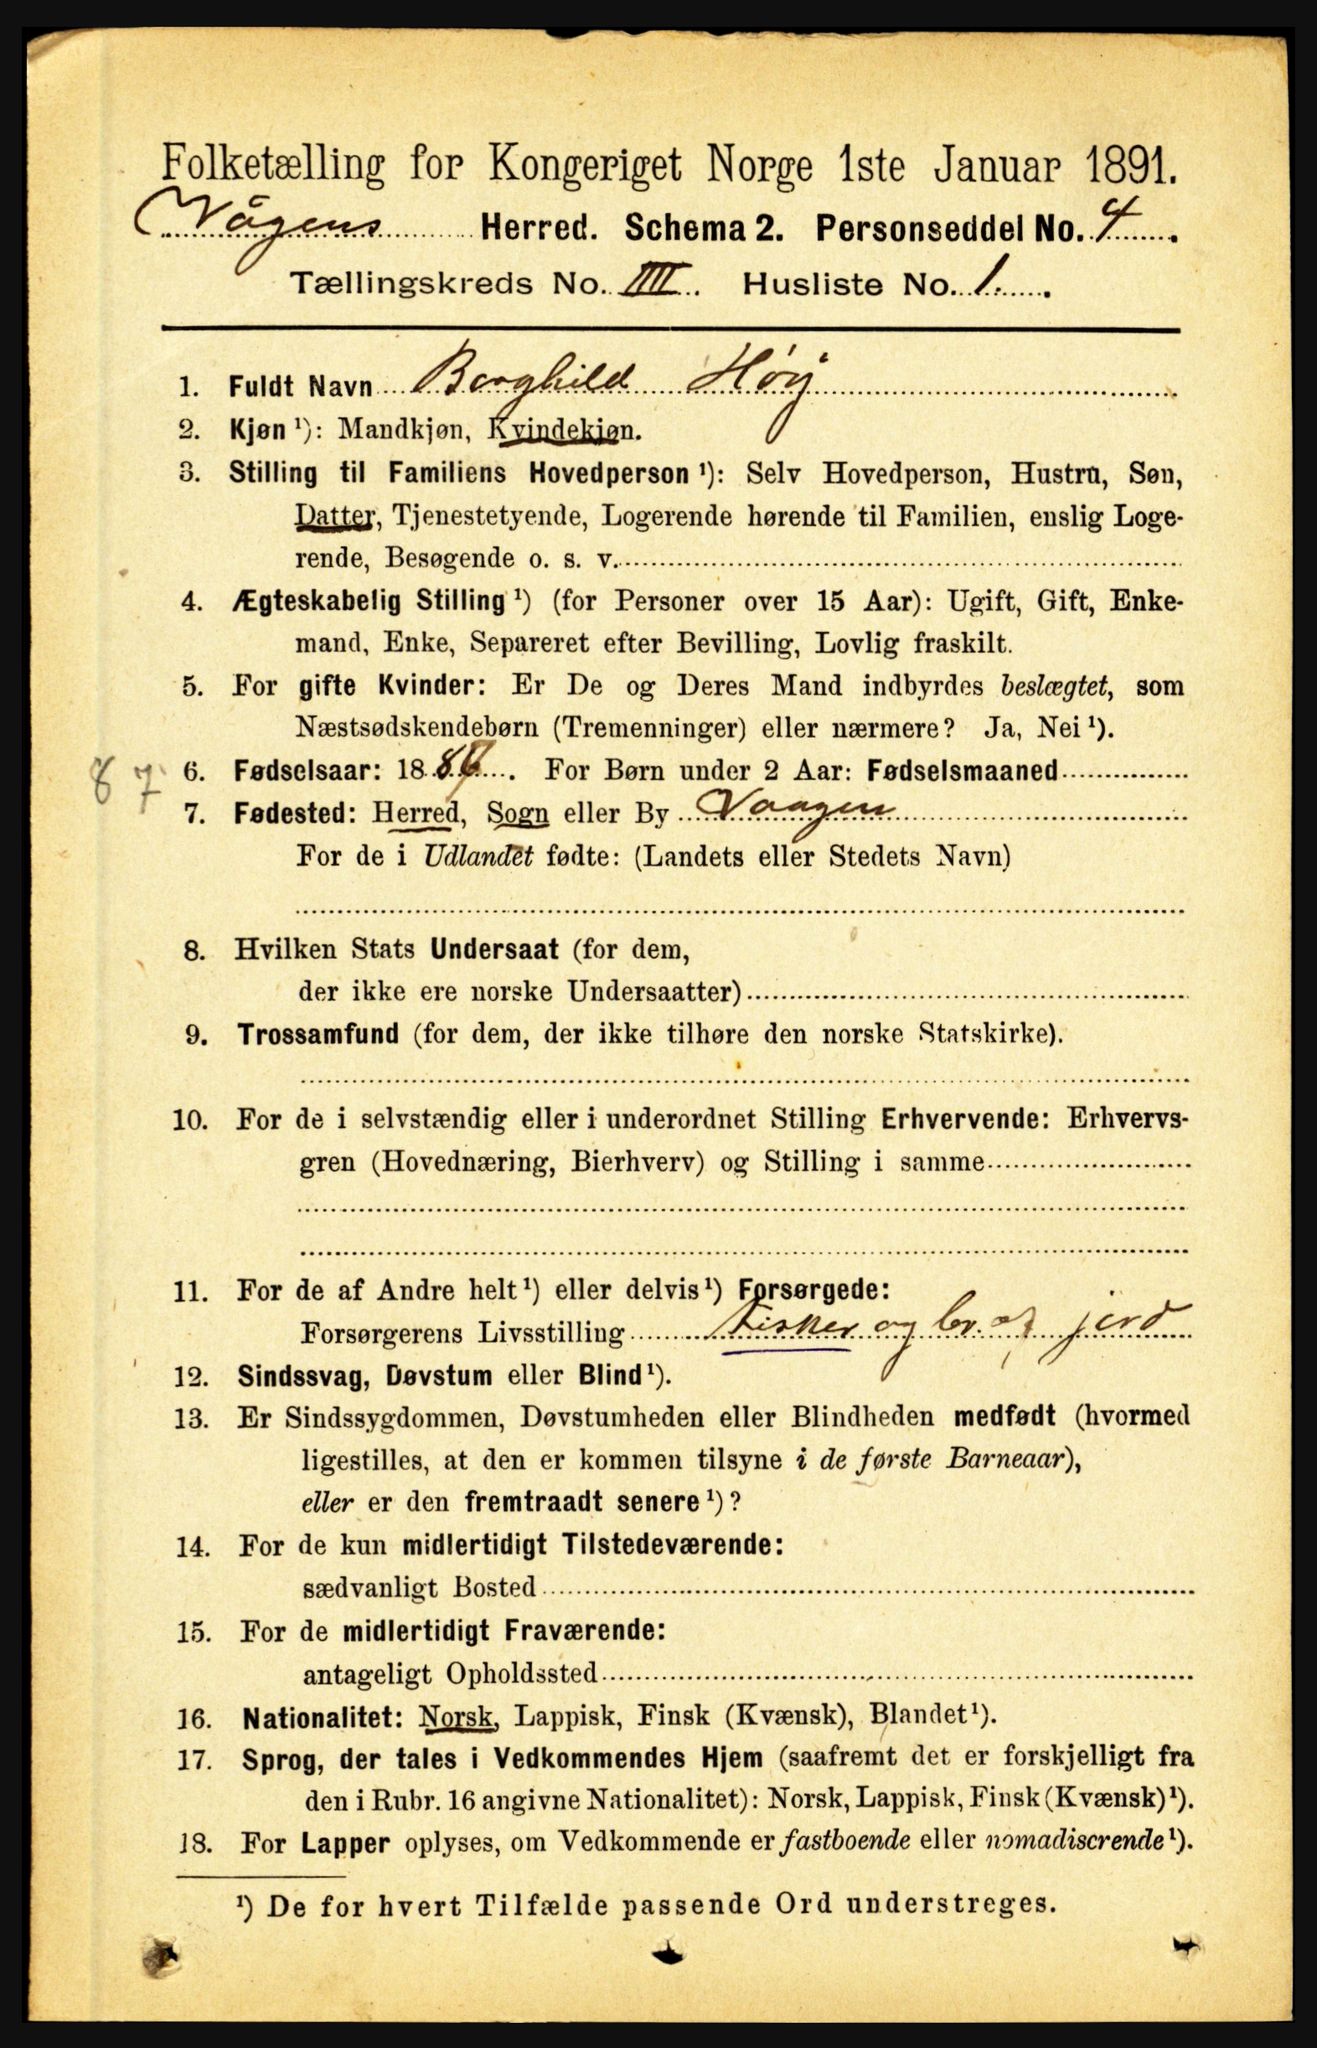 Folketælling for Kongeriget Norge 1ste Januar 1891.
Vågens Herred. Schema 2. Personseddel No. 4.
Tællingskreds No. IIII. Husliste No. 1.
1. Fuldt Navn Borghild Høy
2. Kjøn ¹): Mandkjøn, Kvindekjøn.
3. Stilling til Familiens Hovedperson ¹): Selv Hovedperson, Hustru, Søn,
Datter, Tjenestetyende, Logerende hørende til Familien, enslig Loge-
rende, Besøgende o. s. v.
4. Ægteskabelig Stilling ¹) (for Personer over 15 Aar): Ugift, Gift, Enke-
mand, Enke, Separeret efter Bevilling, Lovlig fraskilt.
5. For gifte Kvinder: Er De og Deres Mand indbyrdes beslægtet, som
Næstsødskendebørn (Tremenninger) eller nærmere? Ja, Nei ¹).
87 6. Fødselsaar: 1887. For Børn under 2 Aar: Fødselsmaaned
7. Fødested: Herred, Sogn eller By Vaagen
For de i Udlandet fødte: (Landets eller Stedets Navn)
8. Hvilken Stats Undersaat (for dem,
der ikke ere norske Undersaatter)
9. Trossamfund (for dem, der ikke tilhøre den norske Statskirke).
10. For de i selvstændig eller i underordnet Stilling Erhvervende: Erhvervs-
gren (Hovednæring, Bierhverv) og Stilling i samme
11. For de af Andre helt ¹) eller delvis ¹) Forsørgede:
Forsørgerens Livsstilling Fisker og br. af jord
12. Sindssvag, Døvstum eller Blind ¹).
13. Er Sindssygdommen, Døvstumheden eller Blindheden medfødt (hvormed
ligestilles, at den er kommen tilsyne i de første Barneaar),
eller er den fremtraadt senere ¹)?
14. For de kun midlertidigt Tilstedeværende:
sædvanligt Bosted
15. For de midlertidigt Fraværende:
antageligt Opholdssted
16. Nationalitet: Norsk, Lappisk, Finsk (Kvænsk), Blandet ¹).
17. Sprog, der tales i Vedkommendes Hjem (saafremt det er forskjelligt fra
den i Rubr. 16 angivne Nationalitet): Norsk, Lappisk, Finsk (Kvænsk) ¹).
18. For Lapper oplyses, om Vedkommende er fastboende eller nomadiserende ¹).
¹) De for hvert Tilfælde passende Ord understreges.